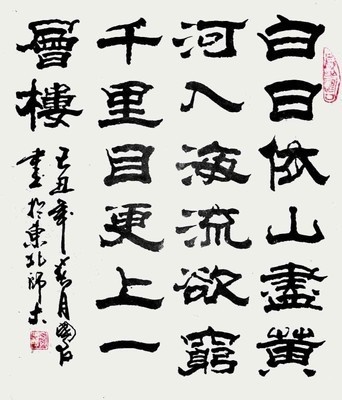 白日依山盡黃
河入海流欲窮
千里目更上一
層樓
己丑年月國
書於東北師大